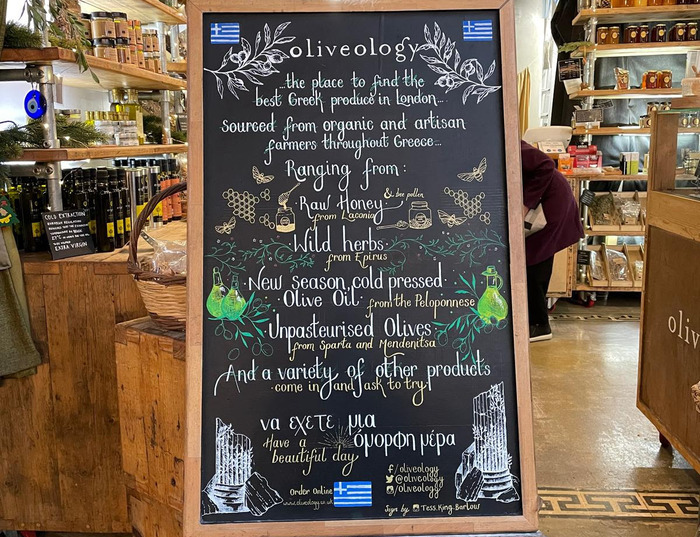 oliveology
...the place to find the
best Greek produce in London...
Sourced from organic and artisan
farmers throughout Greece...
Ranging from:
Raw Honey & bee pollen
from Laconia
Wild herbs
from Epirus
New Season, cold pressed
Olive Oil from the Peloponnese
Unpasteurised Olives
from Sparta and Mendenitsa
And a variety of other products
come in and ask to try!
να εχετε μια
όμορφη μέρα
Have a
beautiful day
f/oliveology
@oliveology
/oliveology
Order Online
www.oliveology.co.uk
Sign by Tess.King.Barlow
COLD EXTRACTION
EXTRA VIRGIN
oliv